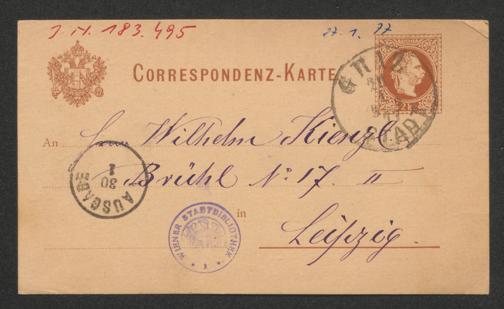 J.N. 183.495
27. 1. 77
CORRESPONDENZ-KARTE
GRAZ
STADT
An
Herrn Wilhelm Kienzl
Brühl No 17. II
AUSGABE
30
1
WIENER STADTBIBLIOTHEK
in
Leipzig.